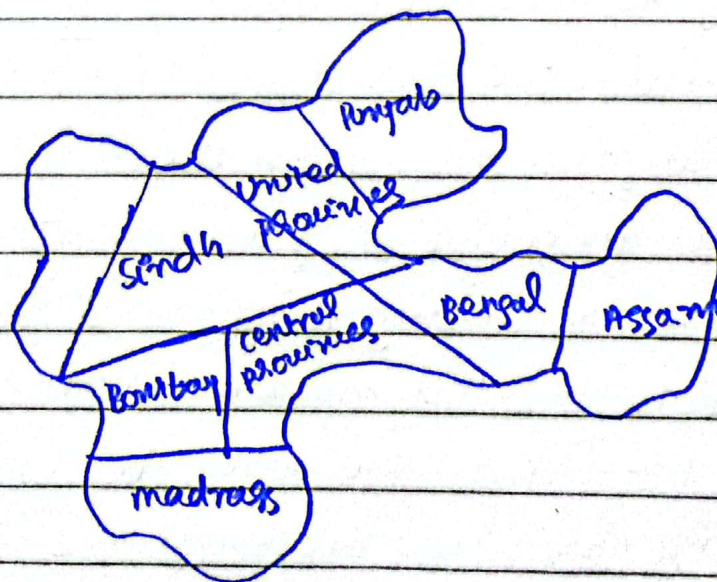 Punjab
United
provinces
Sindh
Bengal
Assam
central
provinces
Bombay
madrass